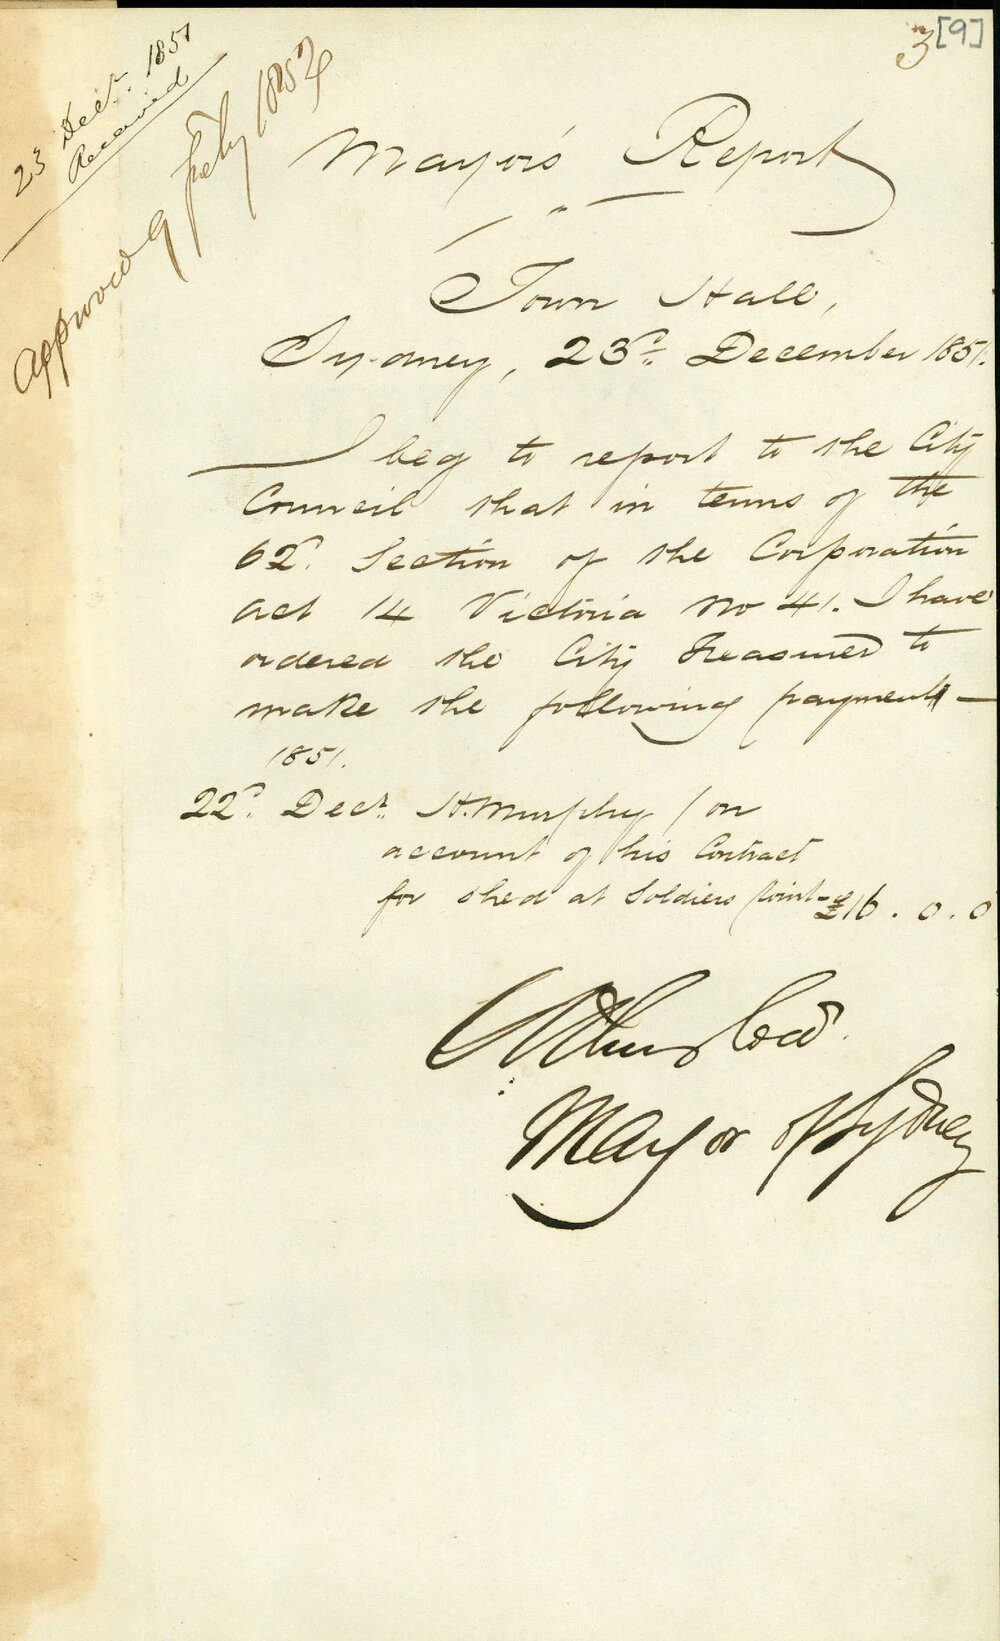 3 [9]
23 Decr. 1851
Received
Approved 9 July 1852
Mayor's Report
Town Hall,
Sydney, 23d. December 1851.
I beg to report to the City
Council that in terms of the
62d. Section of the Corporation
Act 14 Victoria No 41. I have
ordered the City Treasurer to
make the following payment —
1851.
22d. Decr. H. Murphy / on
account of his Contract
for shed at Soldiers Point - £16 . 0 . 0
Mayor of Sydney